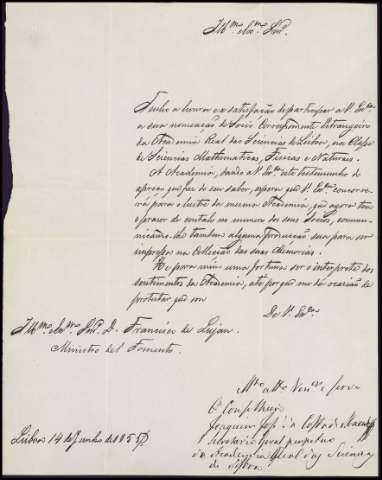 Illmo. Exmo. Snr.
Tenho a honra e a satisfação de participar a V. Exa.
a sua nomeação de Socio Correspondente Estrangeiro
da Academia Real das Sciencias de Lisboa, na Classe
de Sciencias Mathematicas, Fisicas e Naturaes.
A Academia, dando a V. Exa. este testemunho do
apreço que faz do seu saber, espera que V. Exa. concorre-
rá para o lustre da mesma Academia, que agora tem
o prazer de contalo no numero dos seus Socios, commu-
nicando-lhe tambem alguma producção sua para ser
impressa na Collecção das suas Memorias.
He para mim uma fortuna ser o interprete dos
sentimentos da Academia, até porque me dá occasião de
protestar que sou
De V. Exa.
Illmo. Exmo. Snr. D. Francisco de Lujan.
Ministro del Fomento.
Mto. atto. Vener. e servo
O Conselheiro
Joaquim José da Costa de Macedo
Secretario Geral perpetuo
da Academia Real das Sciencias
de Lisboa
Lisboa 14 de Junho de 1855